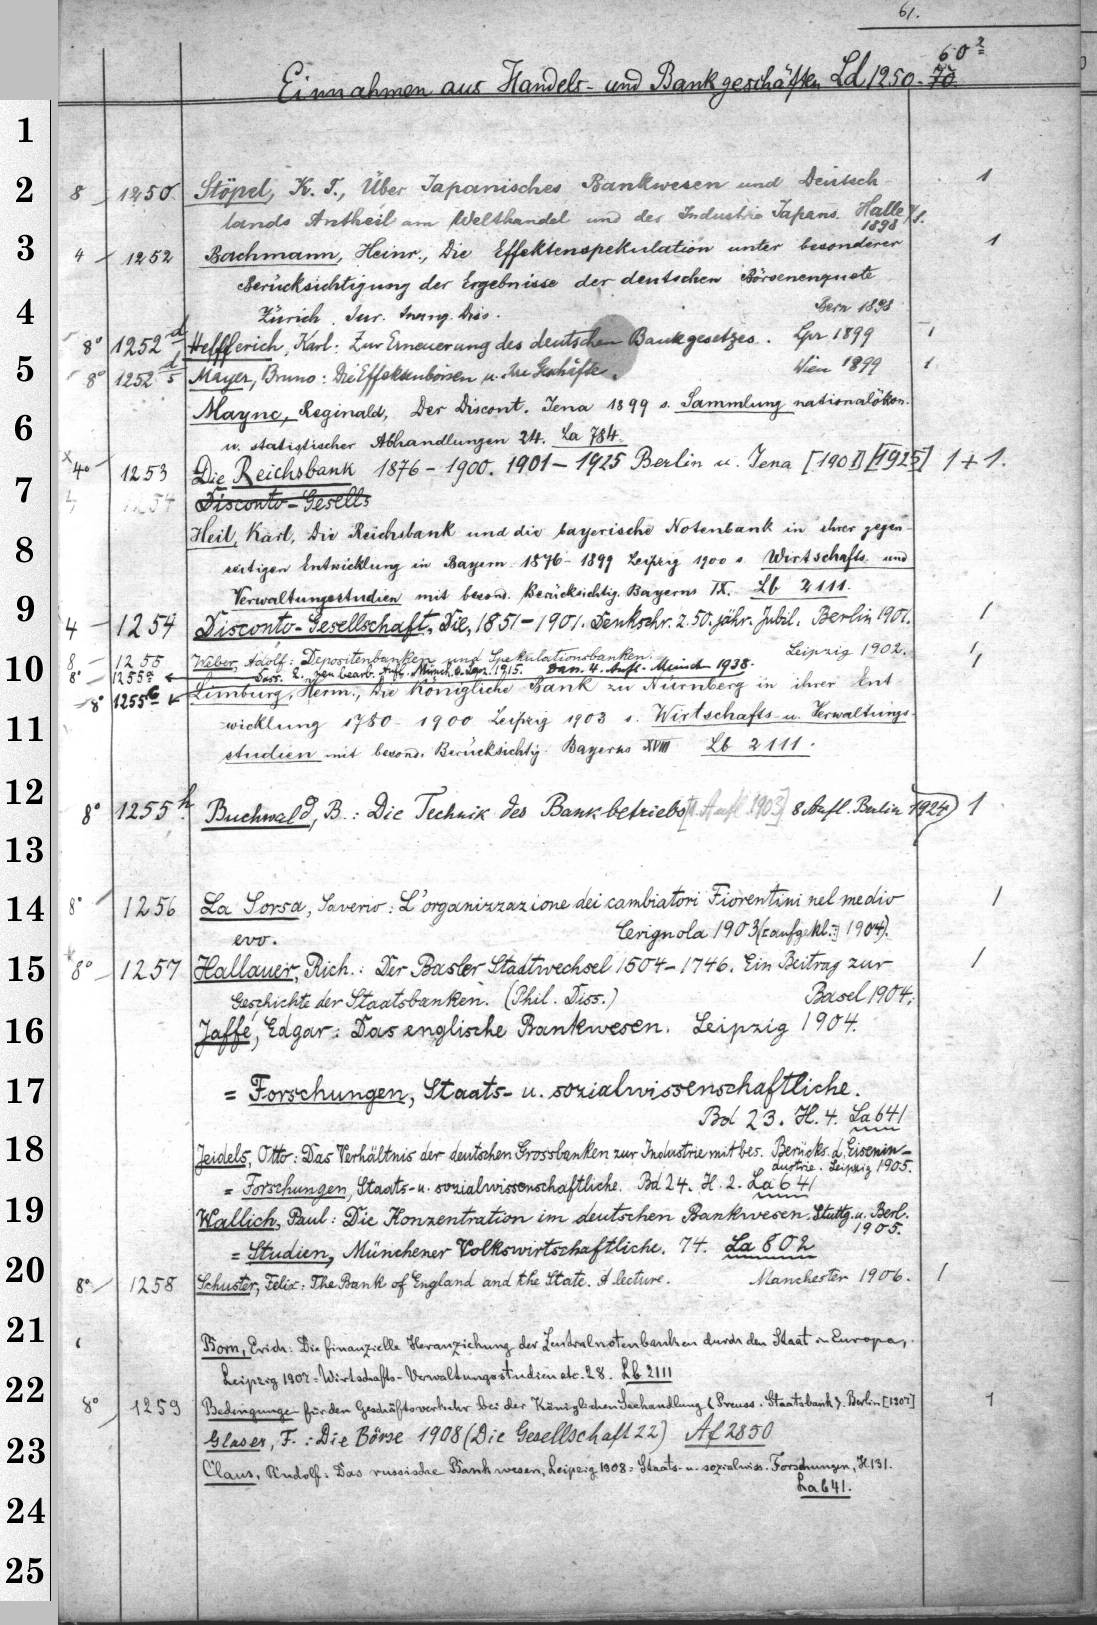 61.
60²
Einnahmen aus Handels- und Bankgeschäften Ld 1250-70.
1
2 8 1250 Stöpel, K. T., Über Japanisches Bankwesen und Deutsch- 1
lands Antheil am Welthandel und der Industrie Japans. Halle a/S.
1898
3 4 1252 Bachmann, Heinr., Die Effektenspekulation unter besonderer 1
Berücksichtigung der Ergebnisse der deutschen Börsenenquete
4 Zürich. Jur. Inaug. Diss. Bern 1898
8° 1252 d Helfferich, Karl: Zur Erneuerung des deutschen Bankgesetzes. Lpz 1899 1
5 8° 1252 d/5 Mayer, Bruno: Die Effektenbörsen u. ihre Geschäfte. Wien 1899 1
Mayne, Reginald, Der Discont. Jena 1899 s. Sammlung nationalökon.
6 u. statistischer Abhandlungen 24. La 784.
x 4° 1253 Die Reichsbank 1876-1900. 1901-1925 Berlin u. Jena [1901] [1925] 1+1.
7 4 1254 Disconto-Gesells
Heil, Karl, Die Reichsbank und die bayerische Notenbank in ihrer gegen-
8 seitigen Entwicklung in Bayern 1876-1899 Leipzig 1900 s. Wirtschafts- und
Verwaltungsstudien mit besond. Berücksichtig. Bayerns IX. Lb 2111.
9 4 1254 Disconto-Gesellschaft, Die, 1851-1901. Denkschr. z. 50. jähr. Jubil. Berlin 1901. 1
10 8 1255 Weber, Adolf: Depositenbanken und Spekulationsbanken. Leipzig 1902. 1
8° 1255a Dass. 2. neu bearb. Aufl. Münch. u. Lpz. 1915. Dan. 4. Aufl. Münch 1938. 1
8° 1255c Limburg, Herm., Die Königliche Bank zu Nürnberg in ihrer Ent-
11 wicklung 1780-1900 Leipzig 1903 s. Wirtschafts- u. Verwaltungs-
studien mit besond. Berücksichtig. Bayerns XVIII Lb 2111.
12 8° 1255h. Buchwald, B.: Die Technik des Bankbetriebs [1. Aufl. 1903] 8 Aufl. Berlin 1924) 1
13
14 8° 1256 La Sorsa, Saverio: L'organizzazione dei cambiatori Fiorentini nel medio 1
evo. Cerignola 1903 (: aufgekl.: 1904).
15 8° 1257 Hallauer, Rich.: Der Basler Stadtwechsel 1504-1746. Ein Beitrag zur 1
Geschichte der Staatsbanken. (Phil. Diss.) Basel 1904.
16 Jaffé, Edgar: Das englische Bankwesen. Leipzig 1904.
17 = Forschungen, Staats- u. sozialwissenschaftliche.
Bd 23. H. 4. La 641
18 Jeidels, Otto: Das Verhältnis der deutschen Grossbanken zur Industrie mit bes. Berücks. d. Eisenin-
dustrie. Leipzig 1905.
= Forschungen, Staats- u. sozialwissenschaftliche. Bd 24. H. 2. La 641
19 Wallich, Paul: Die Konzentration im deutschen Bankwesen. Stuttg. u. Berl.
1905.
= Studien, Münchener Volkswirtschaftliche. 74. La 802
20 8° 1258 Schuster, Felix: The Bank of England and the State. A lecture. Manchester 1906. 1
21 Born, Erich: Die finanzielle Heranziehung der Zentralnotenbanken durch den Staat in Europa,
Leipzig 1907 = Wirtschafts- Verwaltungsstudien etc. 28. Lb 2111
22 8° 1259 Bedingunge für den Geschäftsverkehr bei der Königlichen Seehandlung (Preuss. Staatsbank). Berlin [1907] 1
Glaser, F.: Die Börse 1908 (Die Gesellschaft 22) Af 2850
23 Claus, Rudolf: Das russische Bankwesen, Leipzig 1908 = Staats- u. sozialwiss. Forschungen, H 131.
La 641.
24
25